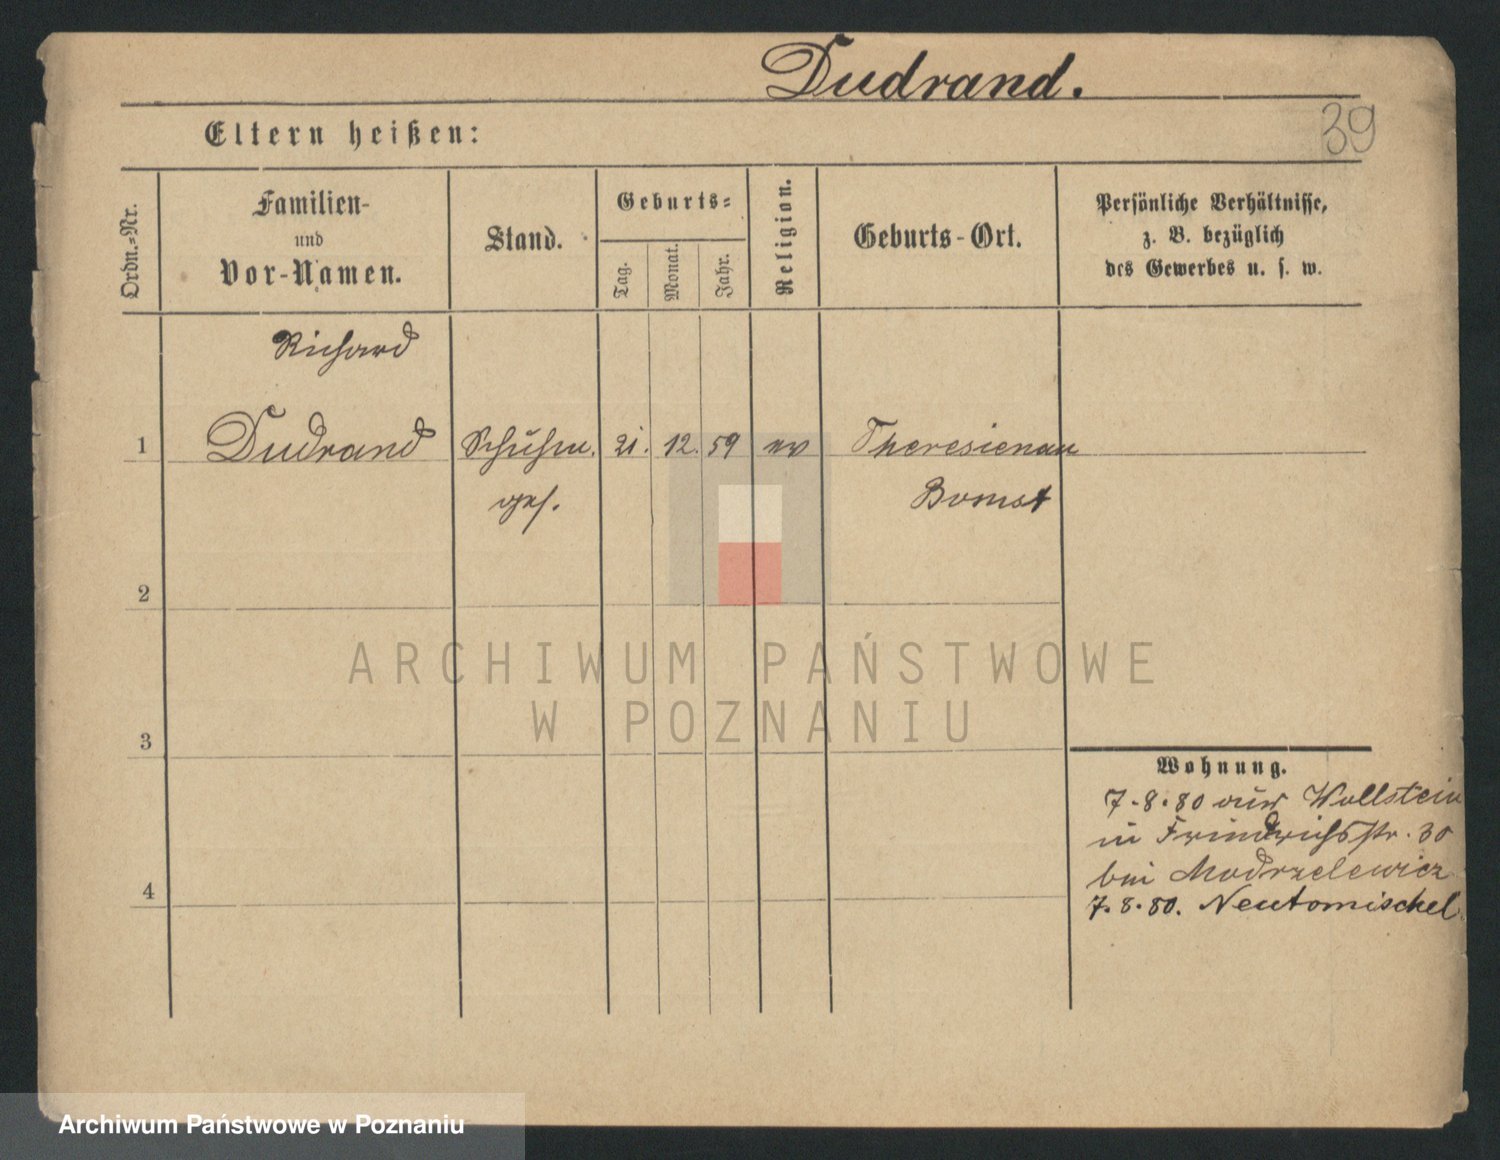 Dudrand.
39
Eltern heißen:
Ordn.=Nr.
Familien-
und
Vor-Namen.
Stand.
Geburts=
Tag.
Monat.
Jahr.
Religion.
Geburts-Ort.
Persönliche Verhältnisse,
z. B. bezüglich
des Gewerbes u. s. w.
Richard
1 Dudrand Schuhm. 21. 12. 59 ev Theresienau
ges. Bomst
2
3
4
ARCHIWUM PAŃSTWOWE
W POZNANIU
Wohnung.
7.8.80 aus Wollstein
in Friedrichsstr. 30
bei Modrzelewicz
7.8.80. Neutomischel
Archiwum Państwowe w Poznaniu